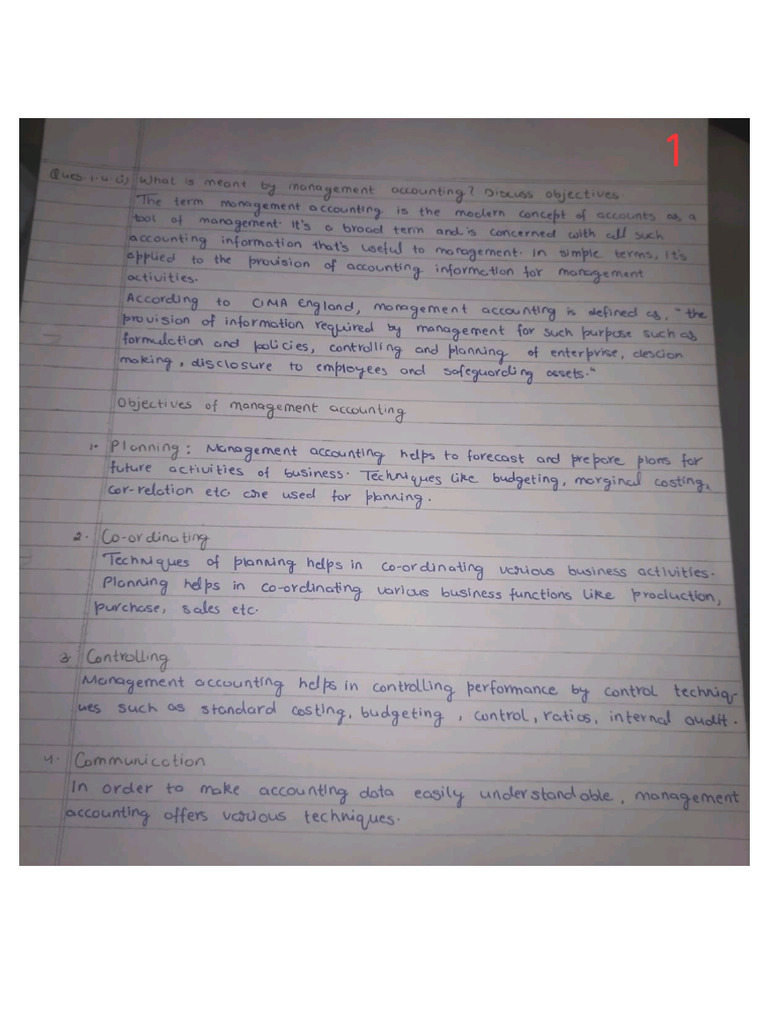 1
Ques.1.u.(i) What is meant by management accounting? Discuss objectives.
The term management accounting is the modern concept of accounts as a
tool of management. It's a broad term and is concerned with all such
accounting information that's useful to management. In simple terms, it's
applied to the provision of accounting information for management
activities.
According to CIMA England, management accounting is defined as, "the
provision of information required by management for such purpose such as
formulation and policies, controlling and planning of enterprise, descion
making, disclosure to employees and safeguarding assets."
Objectives of management accounting
1. Planning: Management accounting helps to forecast and prepare plans for
future activities of business. Techniques like budgeting, marginal costing,
cor-relation etc are used for planning.
2. Co-ordinating
Techniques of planning helps in co-ordinating various business activities.
Planning helps in co-ordinating various business functions like production,
purchase, sales etc.
3. Controlling
Management accounting helps in controlling performance by control techniq-
ues such as standard costing, budgeting, control, ratios, internal audit.
4. Communication
In order to make accounting data easily understandable, management
accounting offers various techniques.